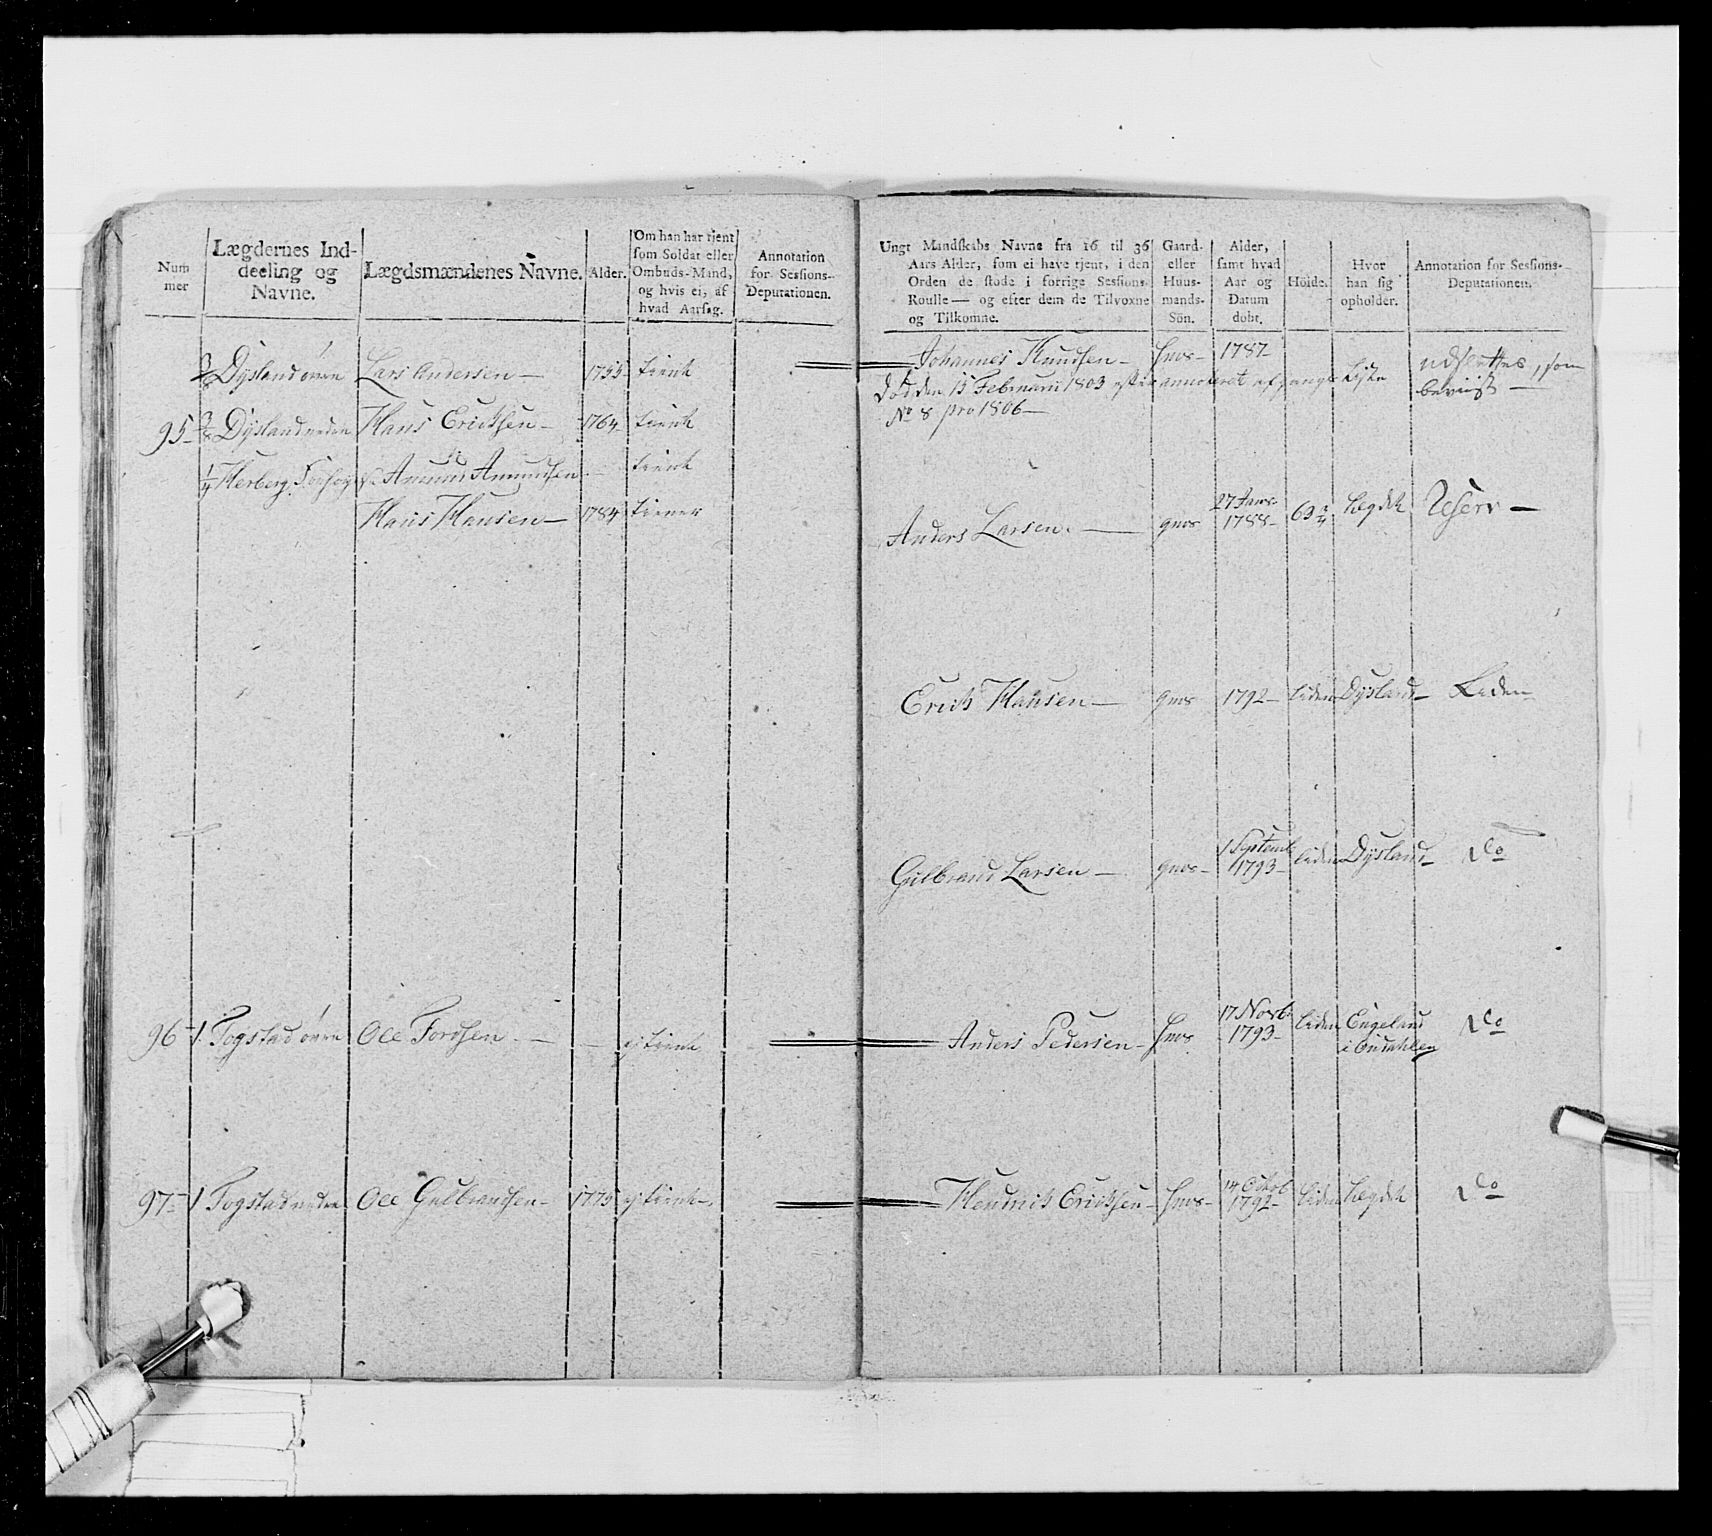 Num
mer
Lægdernes Ind-
deeling og
Navne.
Lægdsmændenes Navne.
Alder.
Om han har tjent
som Soldat eller
Ombuds-Mand,
og hvis ei, af
hvad Aarsag.
Annotation
for Sessions-
Deputationen.
3/8 Dysland øvre Lars Andersen — 1755 tient
95 – 3/8 Dysland nedre Hans Ericksen – 1764 tient
1/4 Herberg Amund Amundsen – tient
Hans Hansen — 1784 tiener
96 – 1 Togstad øvre Ole Fordsen — ej tient
97 – 1 Togstad nedre Ole Gulbrandsen – 1775 ej tient –
Ungt Mandskabs Navne fra 16 til 36
Aars Alder, som ei have tjent, i den
Orden de stode i forrige Sessions-
Roulle — og efter dem de Tilvoxne
og Tilkomne.
Gaard-
eller
Huus-
mands-
Sön.
Alder,
samt hvad
Aar og
Datum
döbt.
Höide.
Hvor
han sig
opholder.
Annotation for Sessions-
Deputationen.
Johannes Knudsen – hms – 1787 udsettes, som
død den 15 Februarii 1803 efter annoteret afgangs Liste beviist —
No 8 pro 1806 —
Anders Larsen. — gms 27 Janr 1788 – 63 3/4 Legdet Reserv —
Erick Hansen — gms 1792 – liden Dysland – Liden
Gulbrand Larsen — gms – 1 Septemb 1793 – liden Dysland – Do
Anders Pedersen – hms 17 Novbr 1793 – liden Engeland Do
Hendrick Ericksen – hms – 14 Octob 1792 – liden Legdet Do